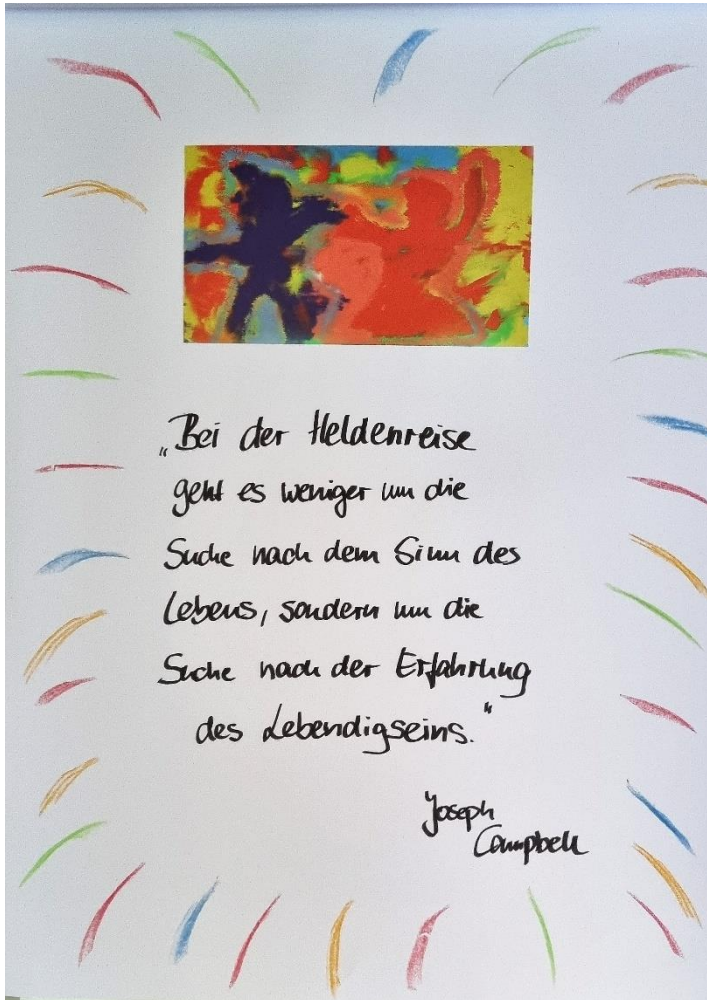 „Bei der Heldenreise
geht es weniger um die
Suche nach dem Sinn des
Lebens, sondern um die
Suche nach der Erfahrung
des Lebendigseins.“
Joseph
Campbell